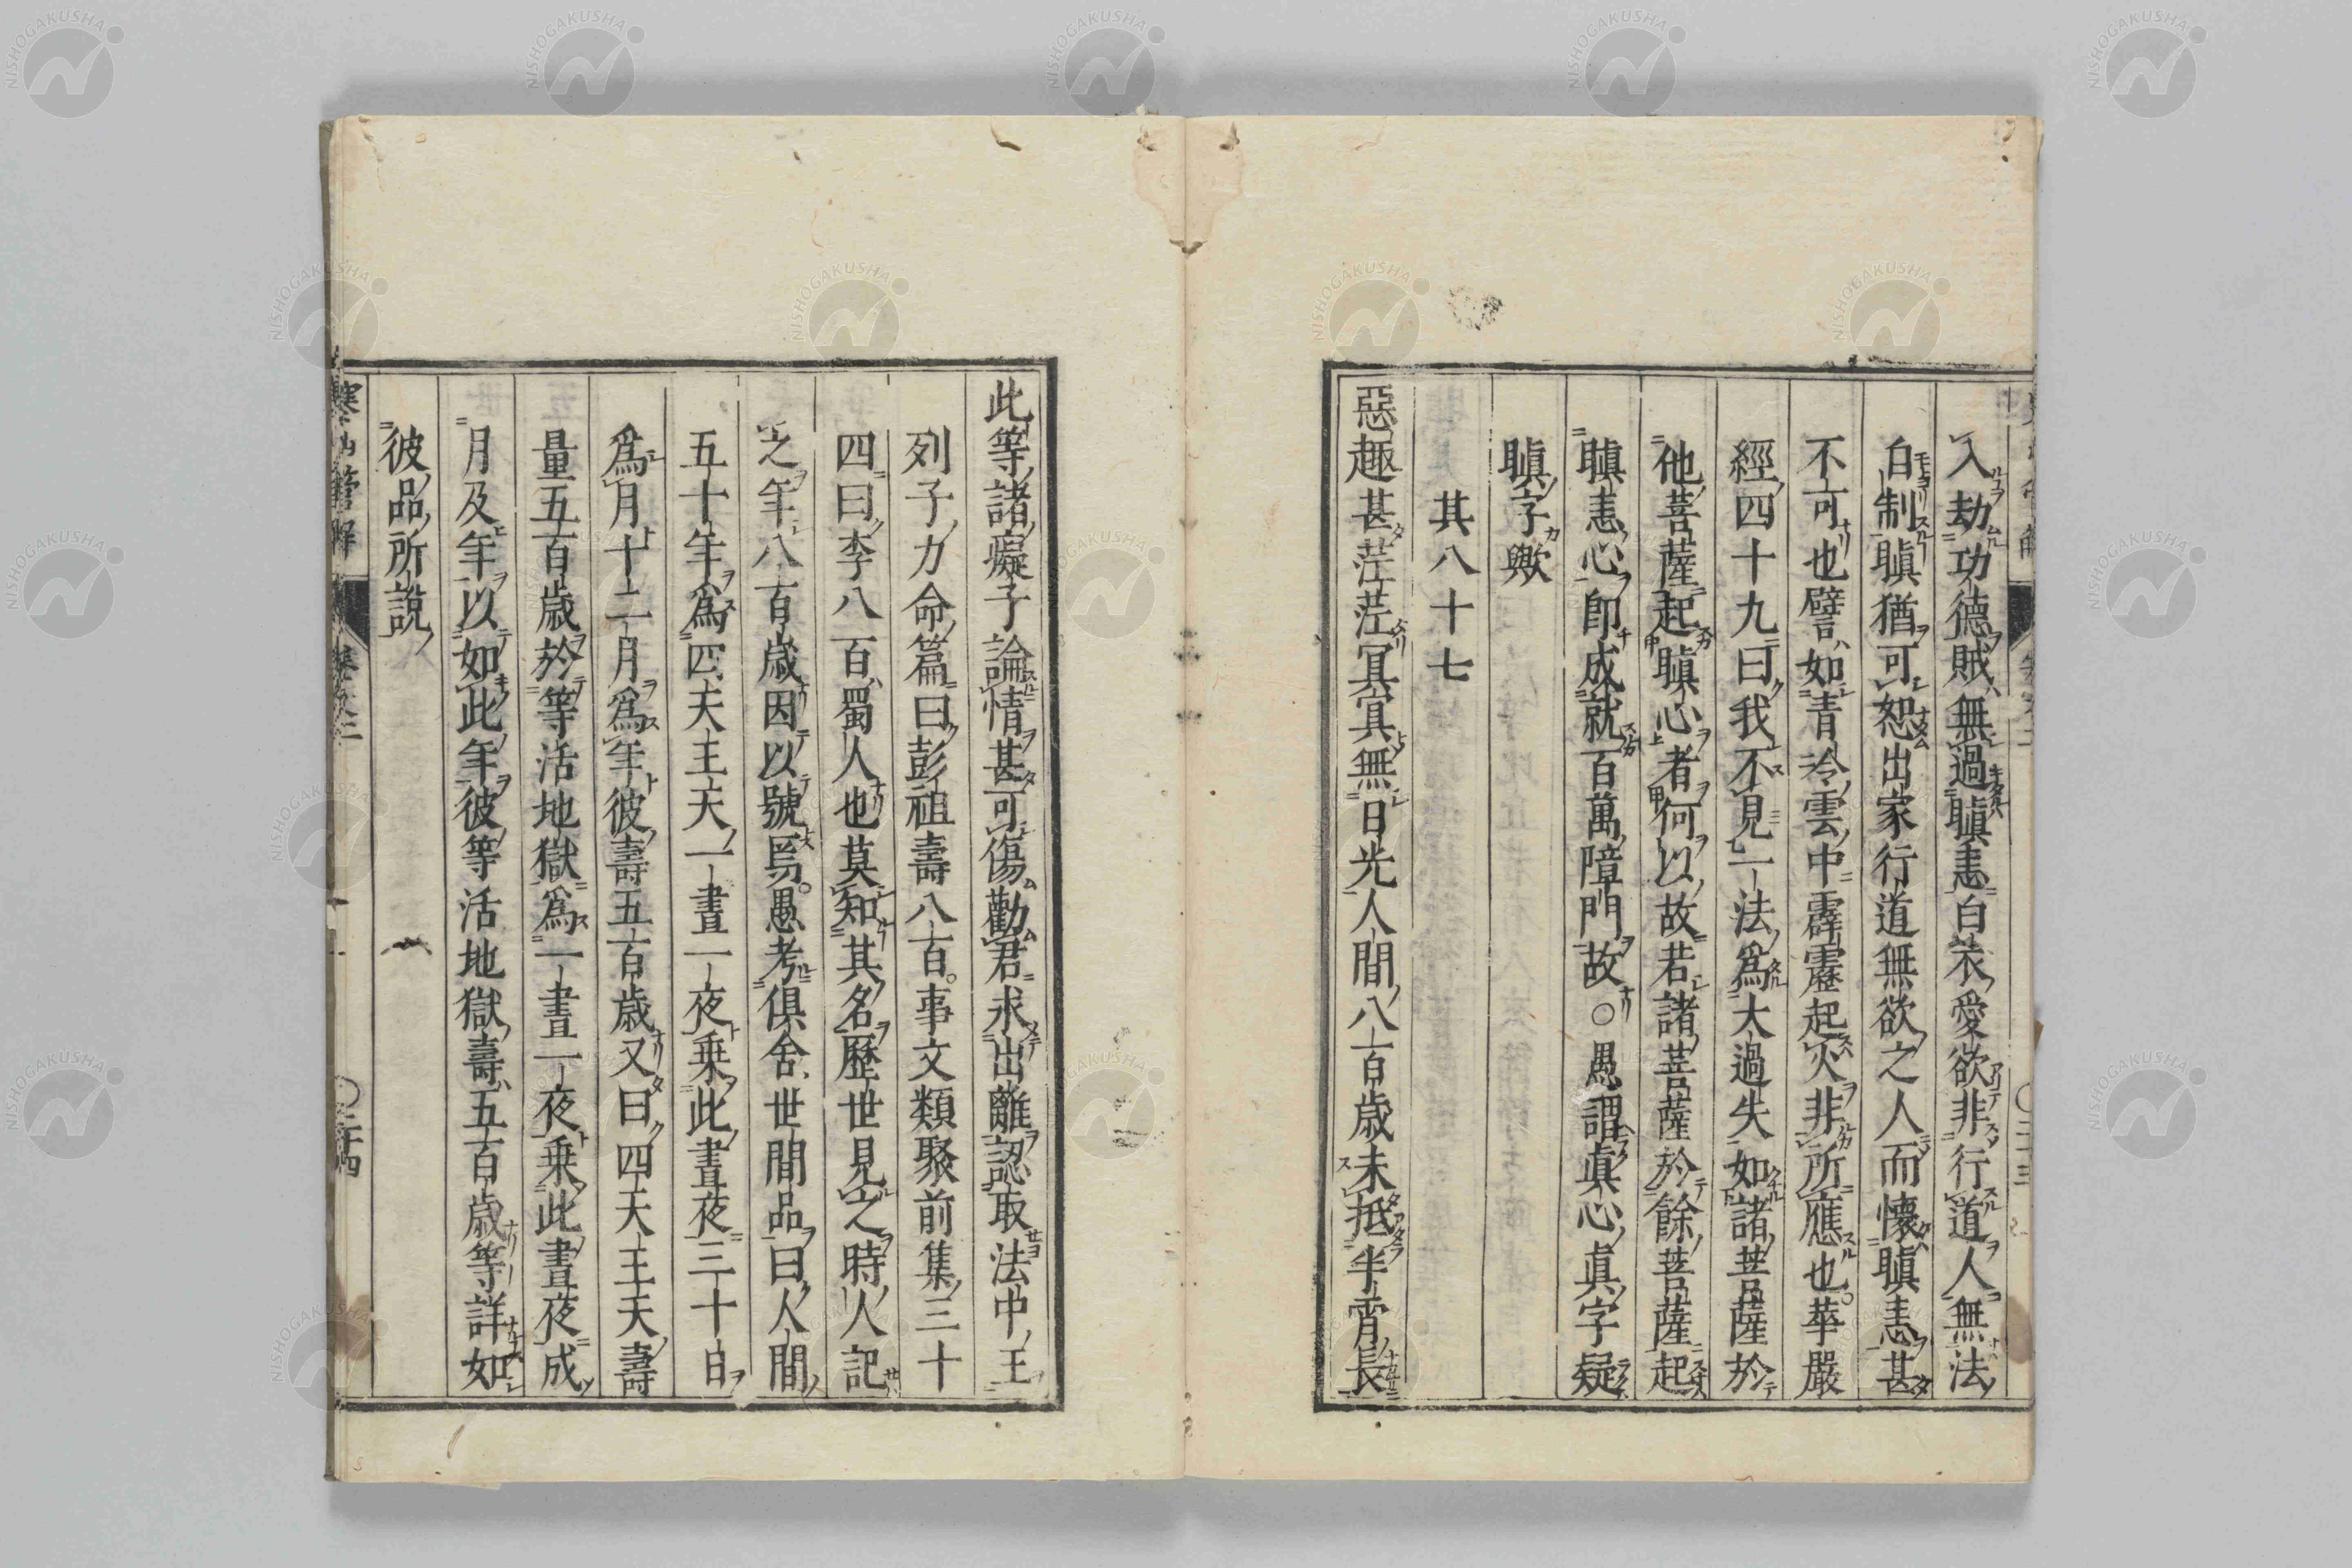 入劫功德賊無過瞋恚白衣愛欲非行道人無法
自制瞋猶可恕出家行道無欲之人而懷瞋恚甚
不可也譬如青冷雲中霹靂起火非所應也華嚴
經四十九曰我不見一法爲大過失如諸菩薩於
他菩薩起瞋心者何以故若諸菩薩於餘菩薩起
瞋恚心即成就百萬障門故○愚謂眞心眞字疑
瞋字歟
其八十七
惡趣甚茫茫冥冥無日光人間八百歳未抵半宵長
此等諸癡子論情甚可傷勸君求出離認取法中王
列子力命篇曰彭祖壽八百事文類聚前集三十
四曰李八百蜀人也莫知其名歷世見之時人記
之年八百歳因以號焉愚考俱舍世間品曰人間
五十年爲四天王天一晝一夜乗此晝夜三十日
爲月十二月爲年彼壽五百歳又曰四天王天壽
量五百歳於等活地獄爲一晝一夜乗此晝夜成
月及年以如此年彼等活地獄壽五百歳等詳如
彼品所說
寒山管解 卷之二 二十四
NISHOGAKUSHA